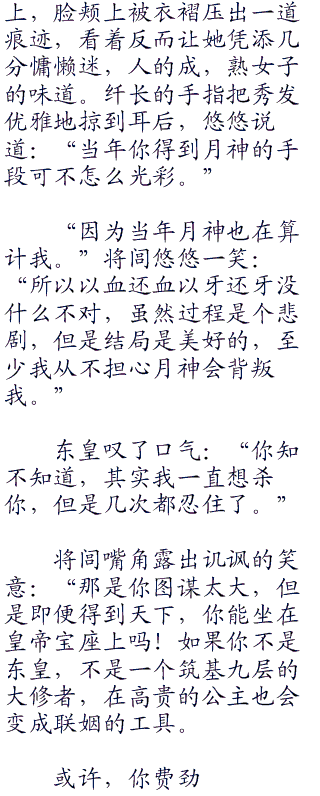 上，脸颊上被衣褶压出一道
痕迹，看着反而让她凭添几
分慵懒迷，人的成，熟女子
的味道。纤长的手指把秀发
优雅地掠到耳后，悠悠说
道：“当年你得到月神的手
段可不怎么光彩。”
“因为当年月神也在算
计我。”将闾悠悠一笑：
“所以以血还血以牙还牙没
什么不对，虽然过程是个悲
剧，但是结局是美好的，至
少我从不担心月神会背叛
我。”
东皇叹了口气：“你知
不知道，其实我一直想杀
你，但是几次都忍住了。”
将闾嘴角露出讥讽的笑
意：“那是你图谋太大，但
是即便得到天下，你能坐在
皇帝宝座上吗！如果你不是
东皇，不是一个筑基九层的
大修者，在高贵的公主也会
变成联姻的工具。
或许，你费劲